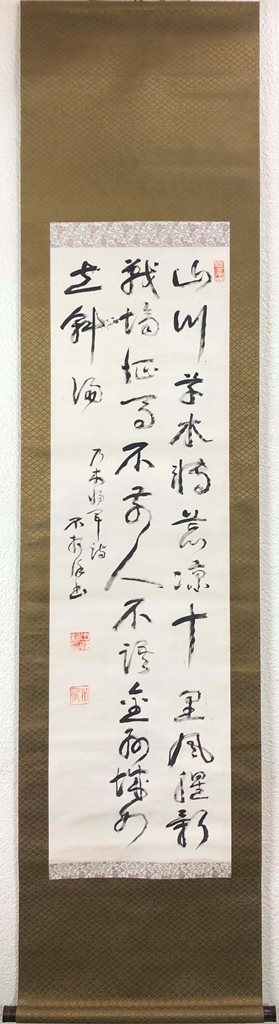 山川草木轉荒涼十里風腥新
戰場征馬不前人不語金州城外
立斜陽
乃木将軍詩
不折俊書